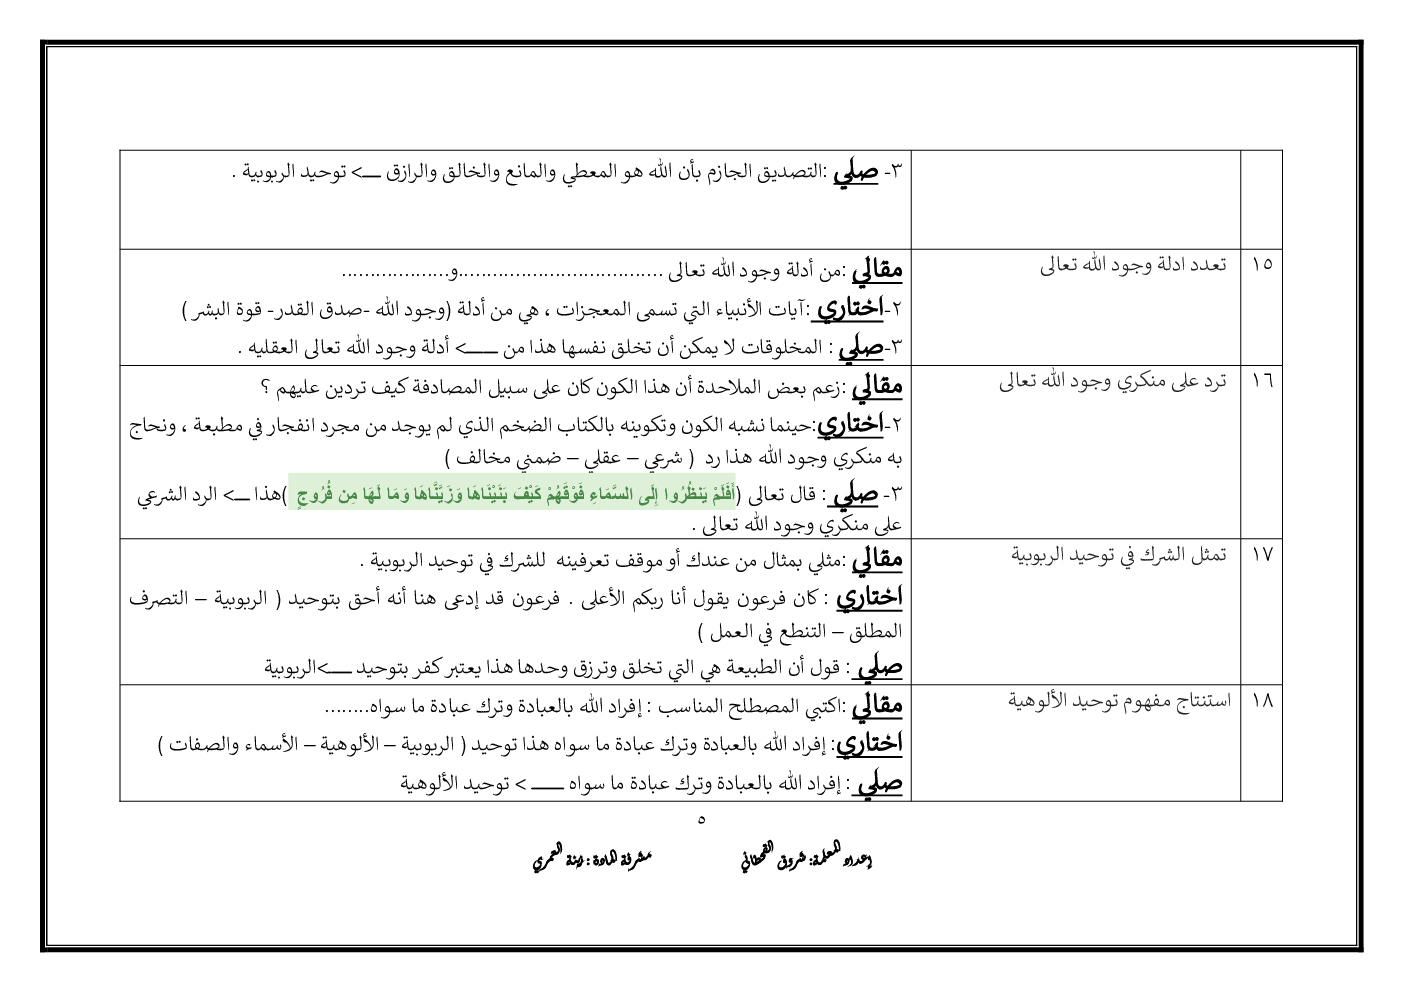 ٣- صلي :التصديق الجازم بأن الله هو المعطي والمانع والخالق والرازق ــــ> توحيد الربوبية .
١٥
تعدد ادلة وجود الله تعالى
مقالي :من أدلة وجود الله تعالى ...................................و...................
٢-اختاري :آيات الأنبياء التي تسمى المعجزات ، هي من أدلة (وجود الله -صدق القدر- قوة البشر )
٣-صلي : المخلوقات لا يمكن أن تخلق نفسها هذا من ـــــــ> أدلة وجود الله تعالى العقليه .
١٦
ترد على منكري وجود الله تعالى
مقالي :زعم بعض الملاحدة أن هذا الكون كان على سبيل المصادفة كيف تردين عليهم ؟
٢-اختاري:حينما نشبه الكون وتكوينه بالكتاب الضخم الذي لم يوجد من مجرد انفجار في مطبعة ، ونحاج
به منكري وجود الله هذا رد ( شرعي – عقلي – ضمني مخالف )
٣- صلي : قال تعالى (أَفَلَمْ يَنظُرُوا إِلَى السَّمَاءِ فَوْقَهُمْ كَيْفَ بَنَيْنَاهَا وَزَيَّنَّاهَا وَمَا لَهَا مِن فُرُوجٍ )هذا ـــ> الرد الشرعي
على منكري وجود الله تعالى .
١٧
تمثل الشرك في توحيد الربوبية
مقالي :مثلي بمثال من عندك أو موقف تعرفينه للشرك في توحيد الربوبية .
اختاري : كان فرعون يقول أنا ربكم الأعلى . فرعون قد إدعى هنا أنه أحق بتوحيد ( الربوبية – التصرف
المطلق – التنطع في العمل )
صلي : قول أن الطبيعة هي التي تخلق وترزق وحدها هذا يعتبر كفر بتوحيد ـــــ>الربوبية
١٨
استنتاج مفهوم توحيد الألوهية
مقالي :اكتبي المصطلح المناسب : إفراد الله بالعبادة وترك عبادة ما سواه........
اختاري: إفراد الله بالعبادة وترك عبادة ما سواه هذا توحيد ( الربوبية – الألوهية – الأسماء والصفات )
صلي : إفراد الله بالعبادة وترك عبادة ما سواه ــــــ > توحيد الألوهية
٥
إعداد المعلمة: شروق القحطاني
مشرفة المادة : نينة العمري